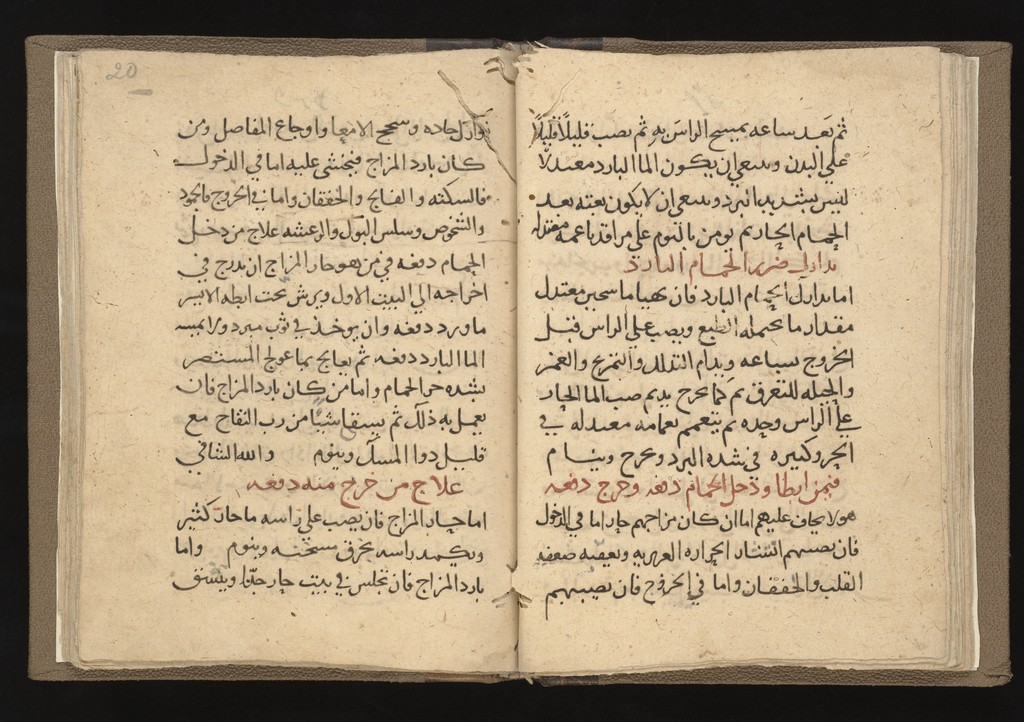 ثم بعد ساعه يمسح الراس به ثم يصب قليلًا قليلًا
علي البدن وينبغي ان يكون الما البارد معتدلا
ليس بشديد البرد وينبغي ان لا يكون بغته بعد
الحمام الحار ثم يومن بالنوم علي مراقد ناعمه معتدله
تدارك ضرر الحمام البارد
اما تدارك الحمام البارد فان يهيا ما سخين معتدل
مقدار ما يحتمله الطبع ويصب علي الراس قبل
الخروج بساعه ويدام التدلك والتمريخ والغمز
والحيله للتعرق ثم كما يخرج يديم صب الما الحار
علي الراس وحده ثم يتعمم بعمامه معتدله في
الحر وكبيره في شده البرد ويخرج وينام
فيمن ابطا ودخل الحمام دفعه وخرج دفعه
هولا يخاف عليهم اما ان كان مزاجهم حار اما في الدخول
فان يصيبهم انتشار الحراره الغريزيه ويعقبه ضعف
القلب والخفقان واما في الخروج فان يصيبهم
20
نوازل حاده وسحج الامعا واوجاع المفاصل ومن
كان بارد المزاج فيخشى عليه اما في الدخول
فالسكته والفالج والخفقان واما في الخروج فالجمود
والشخوص وسلس البول والرعشه علاج من دخل
الحمام دفعه في من هو حار المزاج ان يدرج في
اخراجه الي البيت الاول ويرش تحت ابطه الايسر
ماورد دفعه وان يوخذ في ثوب مبرد ولا يمسه
الما البارد دفعه ثم يعالج بما عولج المستضر
بشده حر الحمام واما من كان بارد المزاج فان
يعمل به ذلك ثم يسقا شيًا من رب التفاح مع
قليل دوا المسك وينوم والله الشافي
علاج من خرج منه دفعه
اما حار المزاج فان يصب علي راسه ما حار كثير
ويكمد راسه بخرق مسخنه وينوم واما
بارد المزاج فان يجلس في بيت حار جدًا ويستق